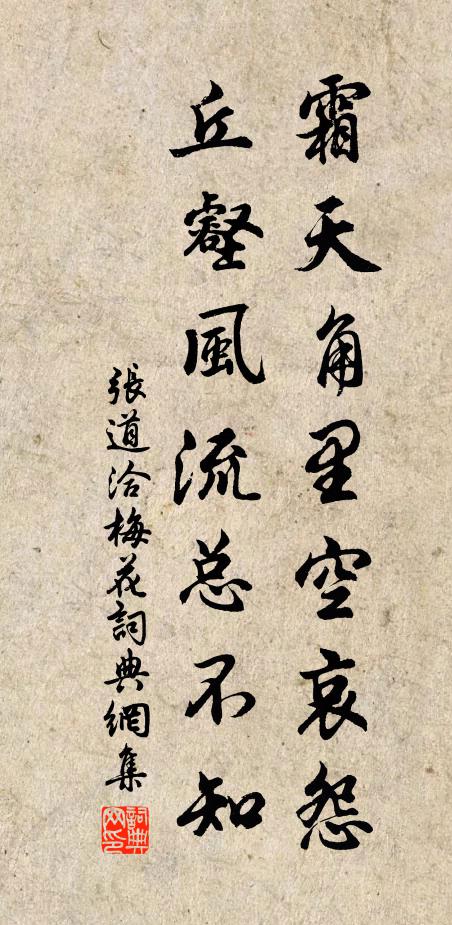 霜天角里空哀怨
丘壑風流总不知
張道洽梅花詞典網集
詞典网印